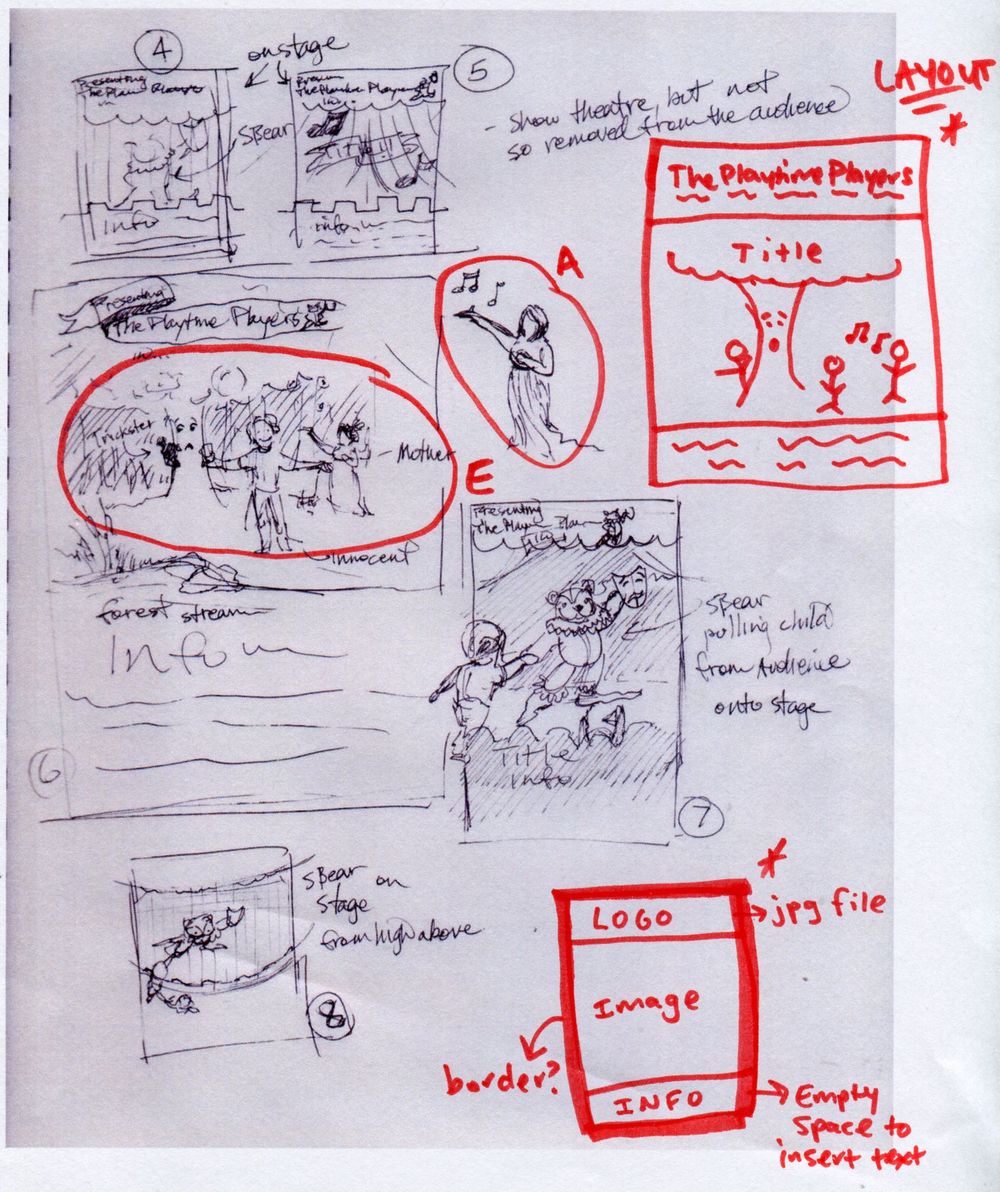 4
on stage
5
LAYOUT
Presenting
The Playtime Players
in
SBear
The Playtime Players
in
Title!!
- Show theatre, but not
so removed from the audience
Info
info
The Playtime Players
Title
A
Presenting
The Playtime Players
in...
Trickster
Mother
Innocent
E
forest stream
Info
6
Presenting
The Playtime Players
Title
Info
SBear
pulling child
from Audience
onto stage
7
SBear on
stage
from high above
8
LOGO
jpg file
Image
border?
INFO
Empty
Space to
insert text